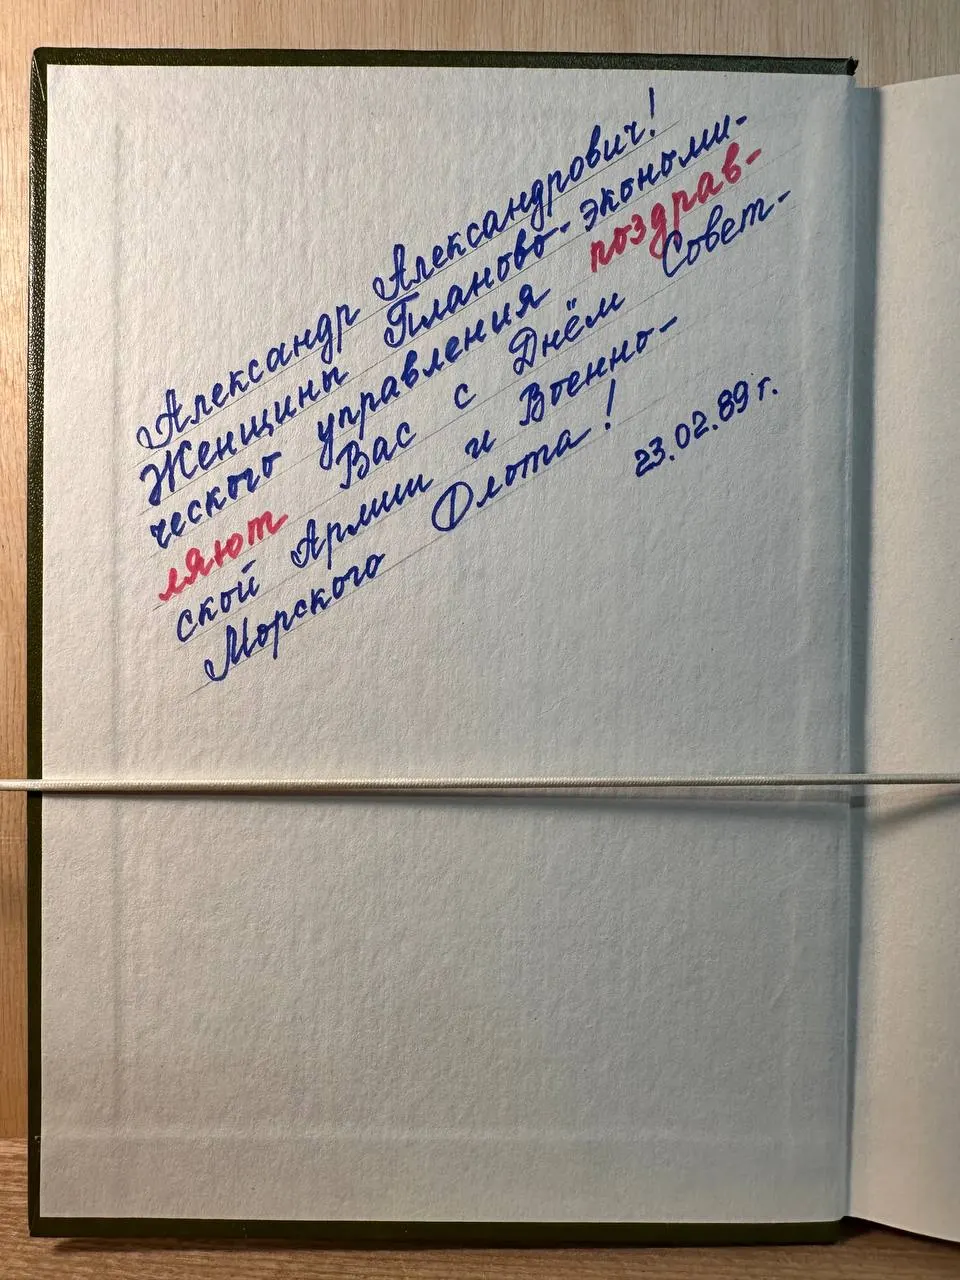 Александр Александрович!
Женщины Планово-экономи-
ческого управления поздрав-
ляют Вас с Днём Совет-
ской Армии и Военно-
Морского Флота!
23.02.89 г.